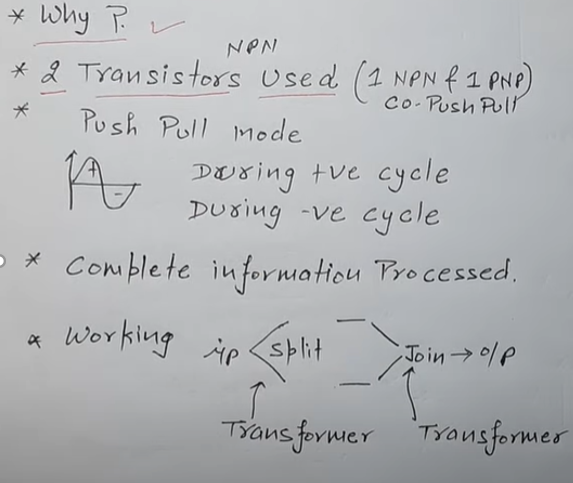 * Why ?
NPN
* 2 Transistors Used (1 NPN & 1 PNP)
CO-Push Pull
* Push Pull mode
+ During +ve cycle
- During -ve cycle
* Complete information Processed.
* Working i/p split Join → o/p
Transformer Transformer